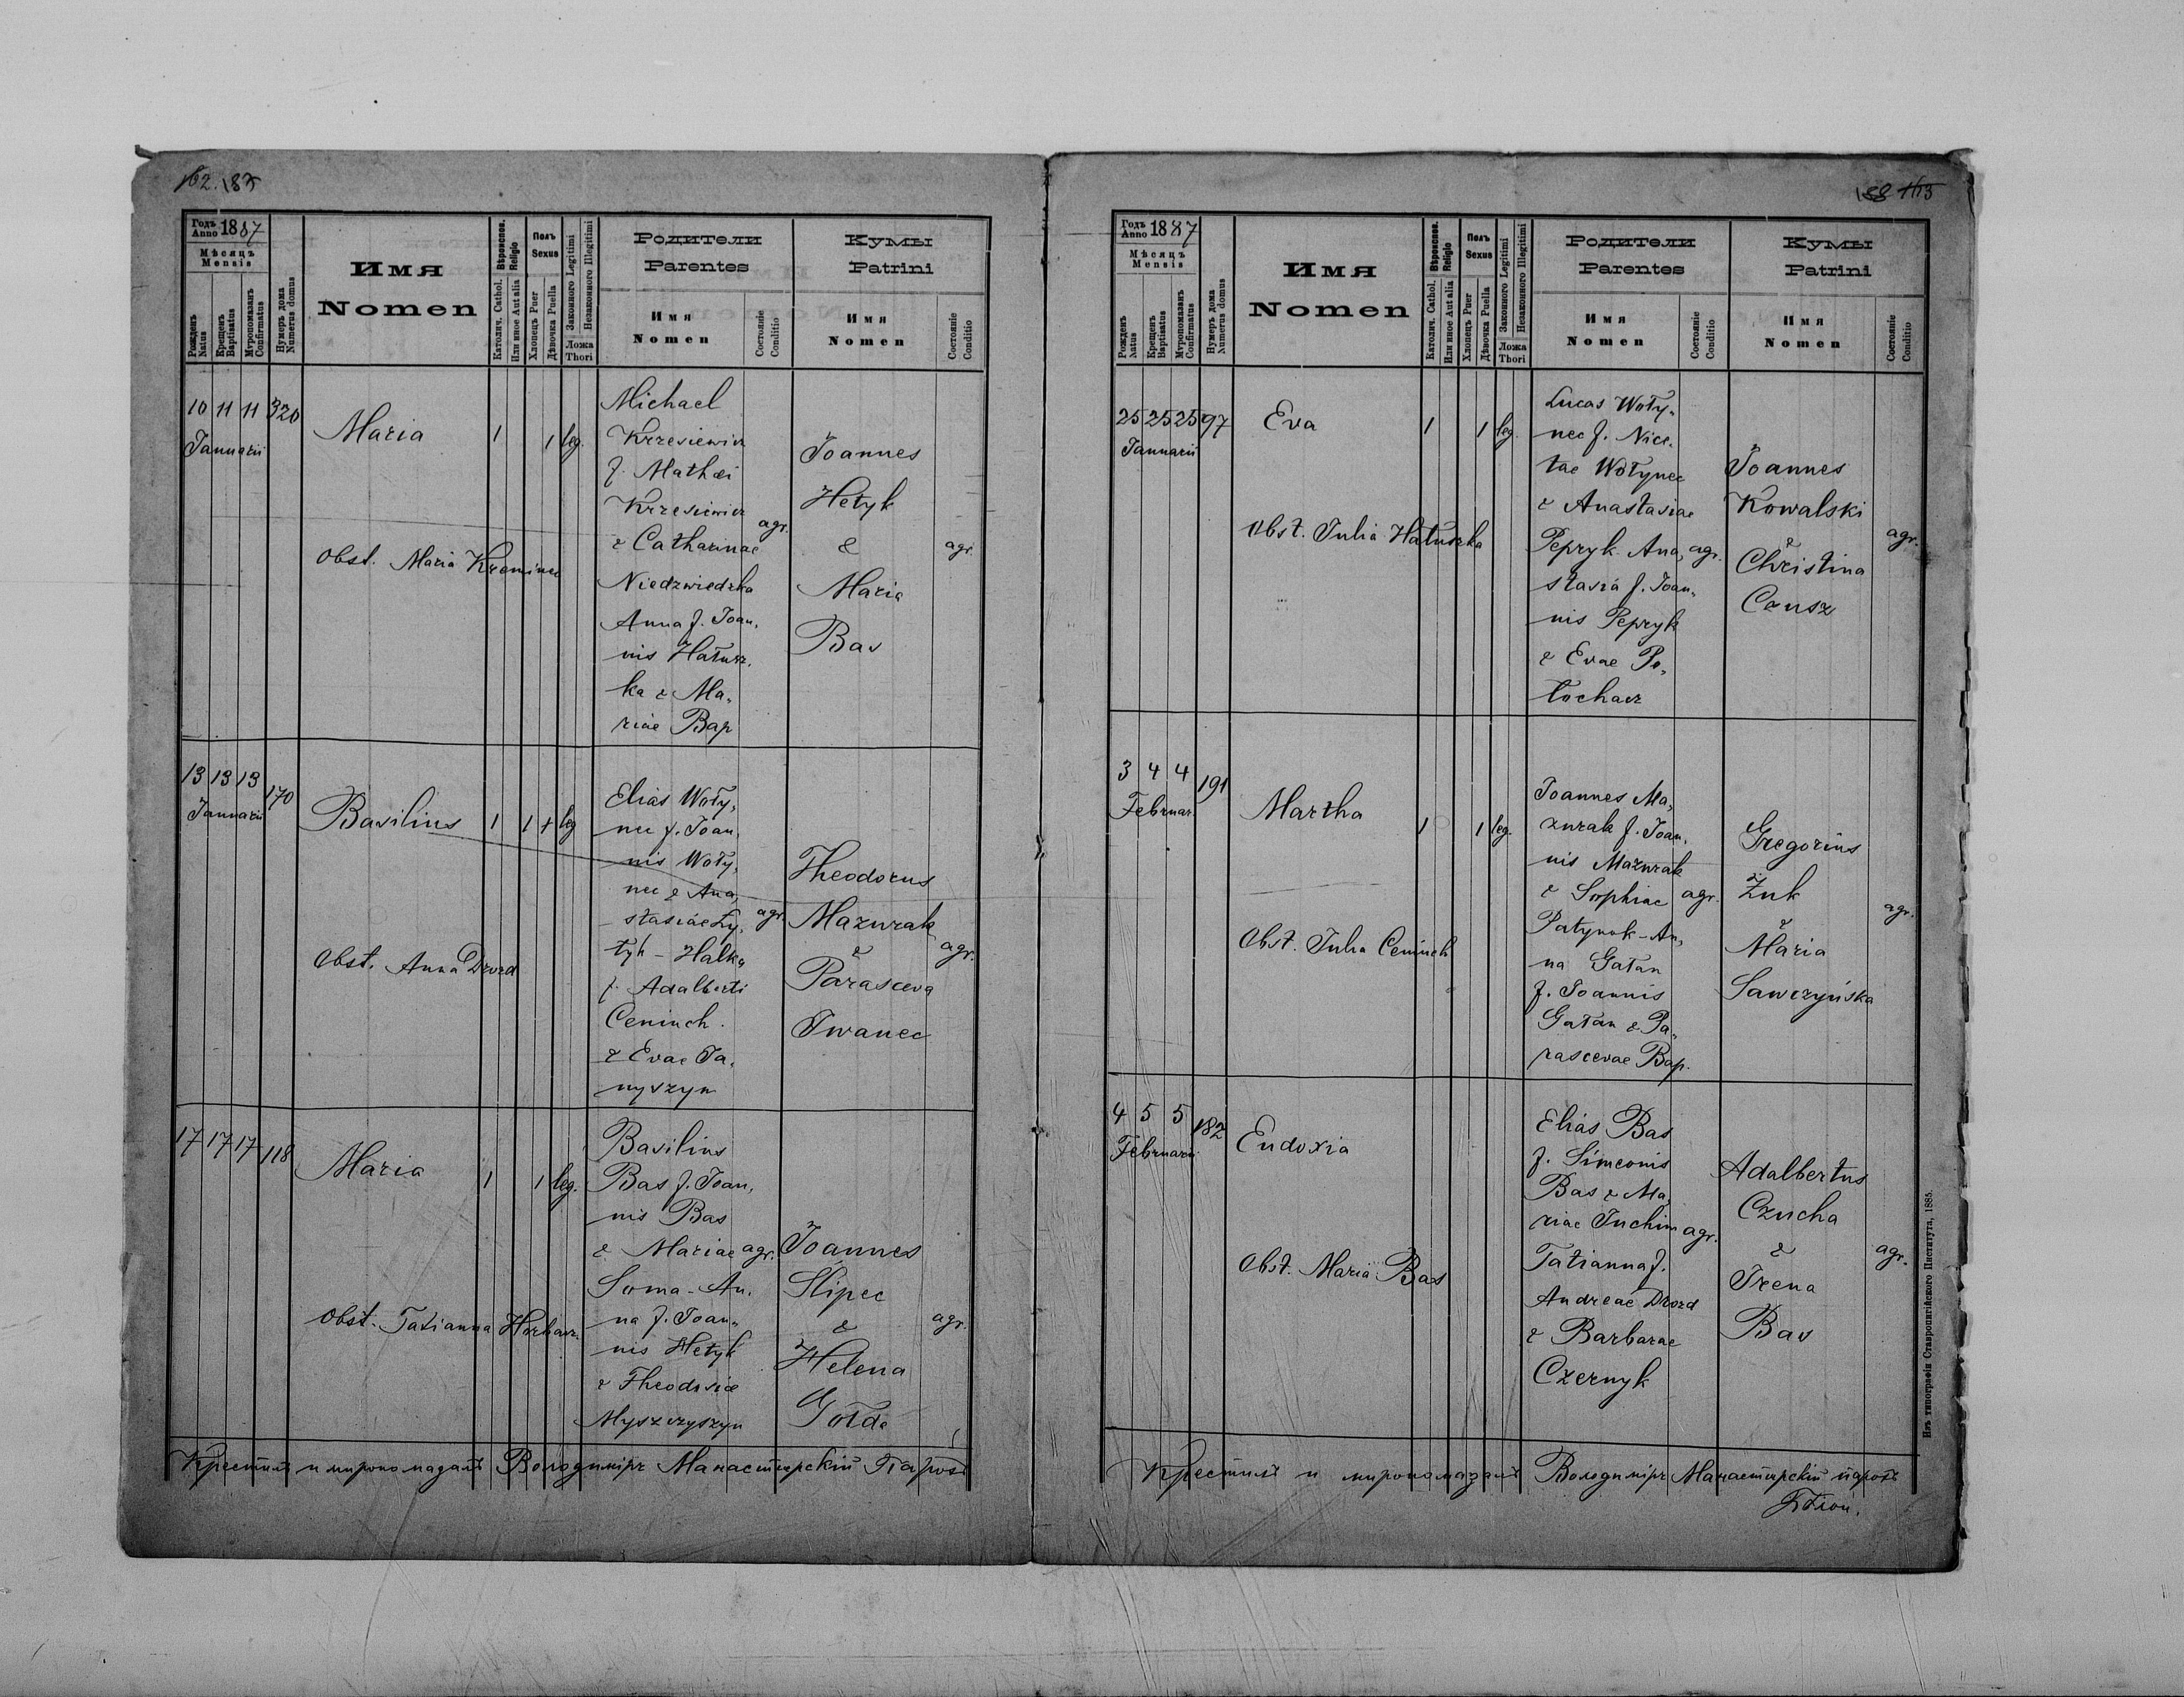 162. 187
Годъ Anno 1887
Мѣсяцъ Mensis
Рожденъ Natus
Крещенъ Baptisatus
Мѵропомазанъ Confirmatus
Нумеръ дома Numerus domus
Имя
Nomen
Вѣроиспов. Religio
Католич. Cathol.
Или иное Aut alia
Полъ Sexus
Хлопецъ Puer
Дѣвочка Puella
Законного Legitimi
Незаконного Illegitimi
Ложа Thori
Родители
Parentes
Имя
Nomen
Состояніе Conditio
Кумы
Patrini
Имя
Nomen
Состояніе Conditio
10 11 11 320
Januarii
Maria
1 1 leg.
Obst. Maria
Michael
Krzesiewicz
f. Mathei
Krzesiewicz
& Catharinae
Niedzwiedzka
Anna f. Joan,
nis Hałusz,
ka & Ma,
riae Bap
agr.
Joannes
Hetyk
&
Maria
Bas
agr.
13 13 13 170
Januarii
Basilius
1 1 + leg
Obst. Anna Drozd
Elias Woły,
nec f. Joan,
nis Woły,
nec & Ana,
stasiae Ły,
tyk - Halka
f. Adalberti
Ceniuch.
& Evae Ja,
nyszyn
agr.
Theodorus
Mazurak
&
Parasceva
Iwanec
agr.
17 17 17 118
Maria
1 1 leg.
Obst. Tatianna Horbacz
Basilius
Bas f. Joan,
nis Bas
& Mariae
Soma - An,
na f. Joan,
nis Hetyk
& Theodosiae
Myszczyszyn
agr.
Joannes
Slipec
&
Helena
Gołda
agr.
Крестилъ и миропомазалъ Володимiръ Манастырскiй Парохъ
188 163
Годъ Anno 1887
Мѣсяцъ Mensis
Рожденъ Natus
Крещенъ Baptisatus
Мѵропомазанъ Confirmatus
Нумеръ дома Numerus domus
Имя
Nomen
Вѣроиспов. Religio
Католич. Cathol.
Или иное Aut alia
Полъ Sexus
Хлопецъ Puer
Дѣвочка Puella
Законного Legitimi
Незаконного Illegitimi
Ложа Thori
Родители
Parentes
Имя
Nomen
Состояніе Conditio
Кумы
Patrini
Имя
Nomen
Состояніе Conditio
25 25 25 97
Januarii
Eva
1 1 leg.
Obst. Julia Hałuszka
Lucas Woły,
nec f. Nice,
tae Wołynec
& Anastasiae
Pepryk. Ana,
stasia f. Joan,
nis Pepryk
& Evae Po,
łochacz
agr.
Joannes
Kowalski
&
Christina
Causz
agr.
3 4 4 191
Februar
Martha
1 1 leg.
Obst. Julia Ceniuch
Joannes Ma,
zurak f. Joan,
nis Mazurak
& Sophiae
Patynok - An,
na Gałan
f. Joannis
Gałan & Pa,
rascevae Bap.
agr.
Gregorius
Żuk
&
Maria
Sawczyńska
agr.
4 5 5 182
Februarii
Eudoxia
Obst. Maria Bas
Elias Bas
f. Simeonis
Bas & Ma,
riae Juchim
Tatianna f.
Andreae Drozd
& Barbarae
Czernyk
agr.
Adalbertus
Czucha
&
Irena
Bas
agr.
Крестилъ и миропомазалъ Володимiръ Манастырскiй парохъ
Изъ типографіи Ставропигійского Института, 1885.